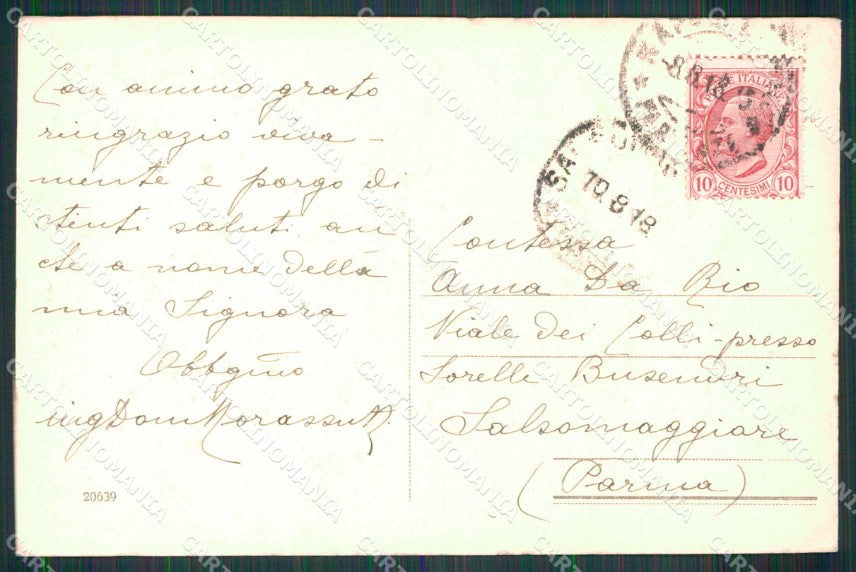 Con animo grato
ringrazio viva-
mente e porgo di
stinti saluti an
che a nome della
mia Signora
Obbgmo
ing Dom Morassutti
20639
8.8.18
POSTE ITALIANE
10 CENTESIMI 10
10.8.18
Contessa
Anna Da Rio
Viale dei Colli-presso
Sorelle
Salsomaggiore
(Parma)
CARTOLINOMANIA